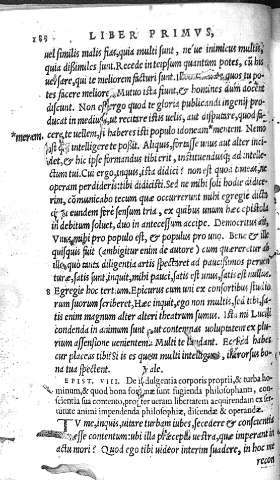 188 LIBER PRIMVS,
uel similis malis fias, quia multi sunt, ne'ue inimicus multis,
quia dissimiles sunt. Recede in teipsum quantum potes, cū his
uersare, qui te meliorem facturi sunt. quos tu po-
tes facere meliores. Mutuo ista fiunt, & homines dum docent
discunt. Non est ergo quod te gloria publicandi ingenij pro-
ducat in medium, ut recitare istis uelis, aut disputare, quod fa-
*merem. cere, te uellem, si haberes isti populo idoneam *mentem. Nemo
est qui intelligere te possit. Aliquis, fortasse unus aut alter inci-
det, & hic ipse formandus tibi erit, instituendusq; ad intelle-
ctum tui. Cui ergo, inquis, ista didici? non est quod timeas, ne
operam perdideris: tibi didicisti. Sed ne mihi soli hodie didice-
rim, cōmunicabo tecum quæ occurrerunt mihi egregie dicta
eundem ferè sensum tria, ex quibus unum hæc epistola
in debitum soluet, duo in antecessum accipe. Democritus ait,
Vnus mihi pro populo est, & populus pro uno. Bene & ille
quisquis fuit (ambigitur enim de autore) cum quereretur ab
illo, quò tanta diligentia artis spectaret ad paucissimos peruen-
turæ, satis sunt, inquit, mihi pauci, satis est unus, satis est nullus.
8 Egregie hoc tertium. Epicurus cum uni ex consortibus studio-
rum suorum scriberet, Hæc inquit, ego non multis, sed tibi, sa-
tis enim magnum alter alteri theatrum sumus. Ista mi Lucili
condenda in animum sunt, ut contemnas uoluptatem ex plu-
rium assensione uenientem. Multi te laudant. Ecquid habes
cur placeas tibi si is es quem multi intelligant, introrsus bo-
na tua spectent. Vale.
EPIST. VIII. De diligentia corporis proprij, & turba ho-
minum, & quod bona fortunæ sunt fugienda philosophanti, con-
scientia sua contento, propter ueram libertatem acquirendam ex ser-
uitute animi impendenda philosophiæ, discendæ & operandæ.
TV me, inquis, uitare turbam iubes, secedere & conscientia
esse contentum: ubi illa præcepta uestra, quæ imperant in
actu mori? Quod ego tibi uideor interim suadere, in hoc me
recon